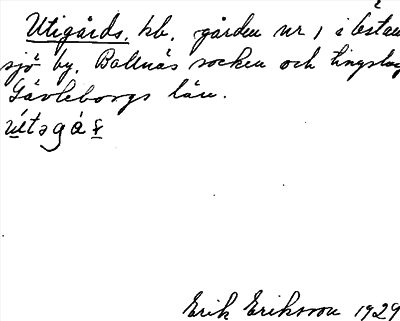 Utigårds, hb. gården nr 1 i Östan
sjö by. Bollnäs socken och tingslag
Gävleborgs län.
Erik Eriksson 1929